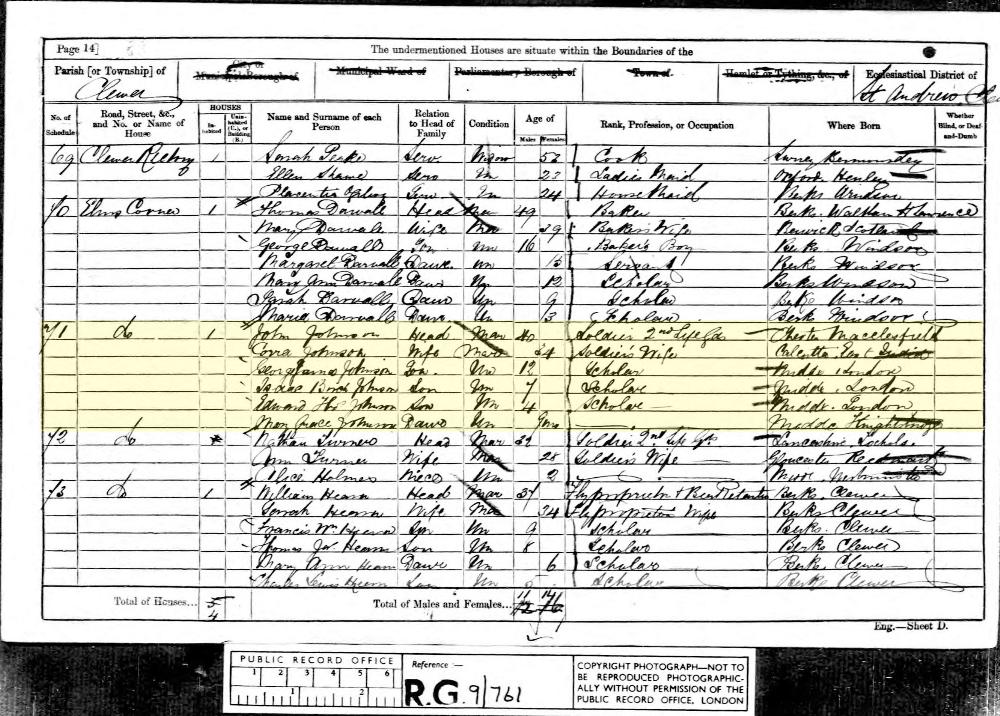 Page 14]
The undermentioned Houses are situate within the Boundaries of the
Parish [or Township] of
City of
Municipal Borough of
Municipal Ward of
Parliamentary Borough of
Town of
Hamlet or Tything, &c., of
Ecclesiastical District of
Clewer
St Andrews
No. of Schedule
Road, Street, &c., and No. or Name of House
HOUSES
Inhabited
Uninhabited (U.), or Building (B.)
Name and Surname of each Person
Relation to Head of Family
Condition
Age of
Males
Females
Rank, Profession, or Occupation
Where Born
Whether Blind, or Deaf-and-Dumb
69 Clewer Rectory 1 Sarah Serv Widow 52 Cook Surrey Bermondsey
Ellen Serv Un 23 Ladies Maid Oxford Henley
Serv Un 24 House Maid Berks Windsor
70 Elms Corner 1 Thomas Darvall Head Mar 49 Baker Berks Waltham St Lawrence
Mary Darvall Wife Mar 39 Baker's Wife Berwick Scotland
George Darvall Son Un 16 Baker's Boy Berks Windsor
Margaret Darvall Daur Un 15 Servant Berks Windsor
Mary Ann Darvall Daur Un 12 Scholar Berks Windsor
Sarah Darvall Daur Un 9 Scholar Berks Windsor
Maria Darvall Daur Un 3 Scholar Berks Windsor
71 do 1 John Johnson Head Mar 40 Soldier 2nd Life Gds Chester Macclesfield
Johnson Wife Mar 34 Soldier's Wife Calcutta East Indies
George James Johnson Son Un 12 Scholar Middx London
Isaac Birch Johnson Son Un 7 Scholar Middx London
Edward Thos Johnson Son Un 4 Scholar Middx London
Mary Grace Johnson Daur Un 9mo
72 do Nathan Turner Head Mar 32 Soldier 2nd Life Gds Lancashire
Ann Turner Wife Mar 28 Soldier's Wife Gloucester
Alice Holmes Niece Un 2 Middx Westminster
73 do 1 William Hearn Head Mar 37 Fly proprietor & Beer Retailer Berks Clewer
Sarah Hearn Wife Mar 34 Fly proprietors Wife Berks Clewer
Francis Wm Hearn Son Un 9 Scholar Berks Clewer
Thomas Jas Hearn Son Un 8 Scholar Berks Clewer
Mary Ann Hearn Daur Un 6 Scholar Berks Clewer
Charles Lewis Hearn Son Un 5 Scholar Berks Clewer
Total of Houses... 4
Total of Males and Females... 11 14
Eng.—Sheet D.
PUBLIC RECORD OFFICE
1 2 3 4 5 6
1 2
Reference :—
R.G. 9/761
COPYRIGHT PHOTOGRAPH—NOT TO
BE REPRODUCED PHOTOGRAPHIC-
ALLY WITHOUT PERMISSION OF THE
PUBLIC RECORD OFFICE, LONDON